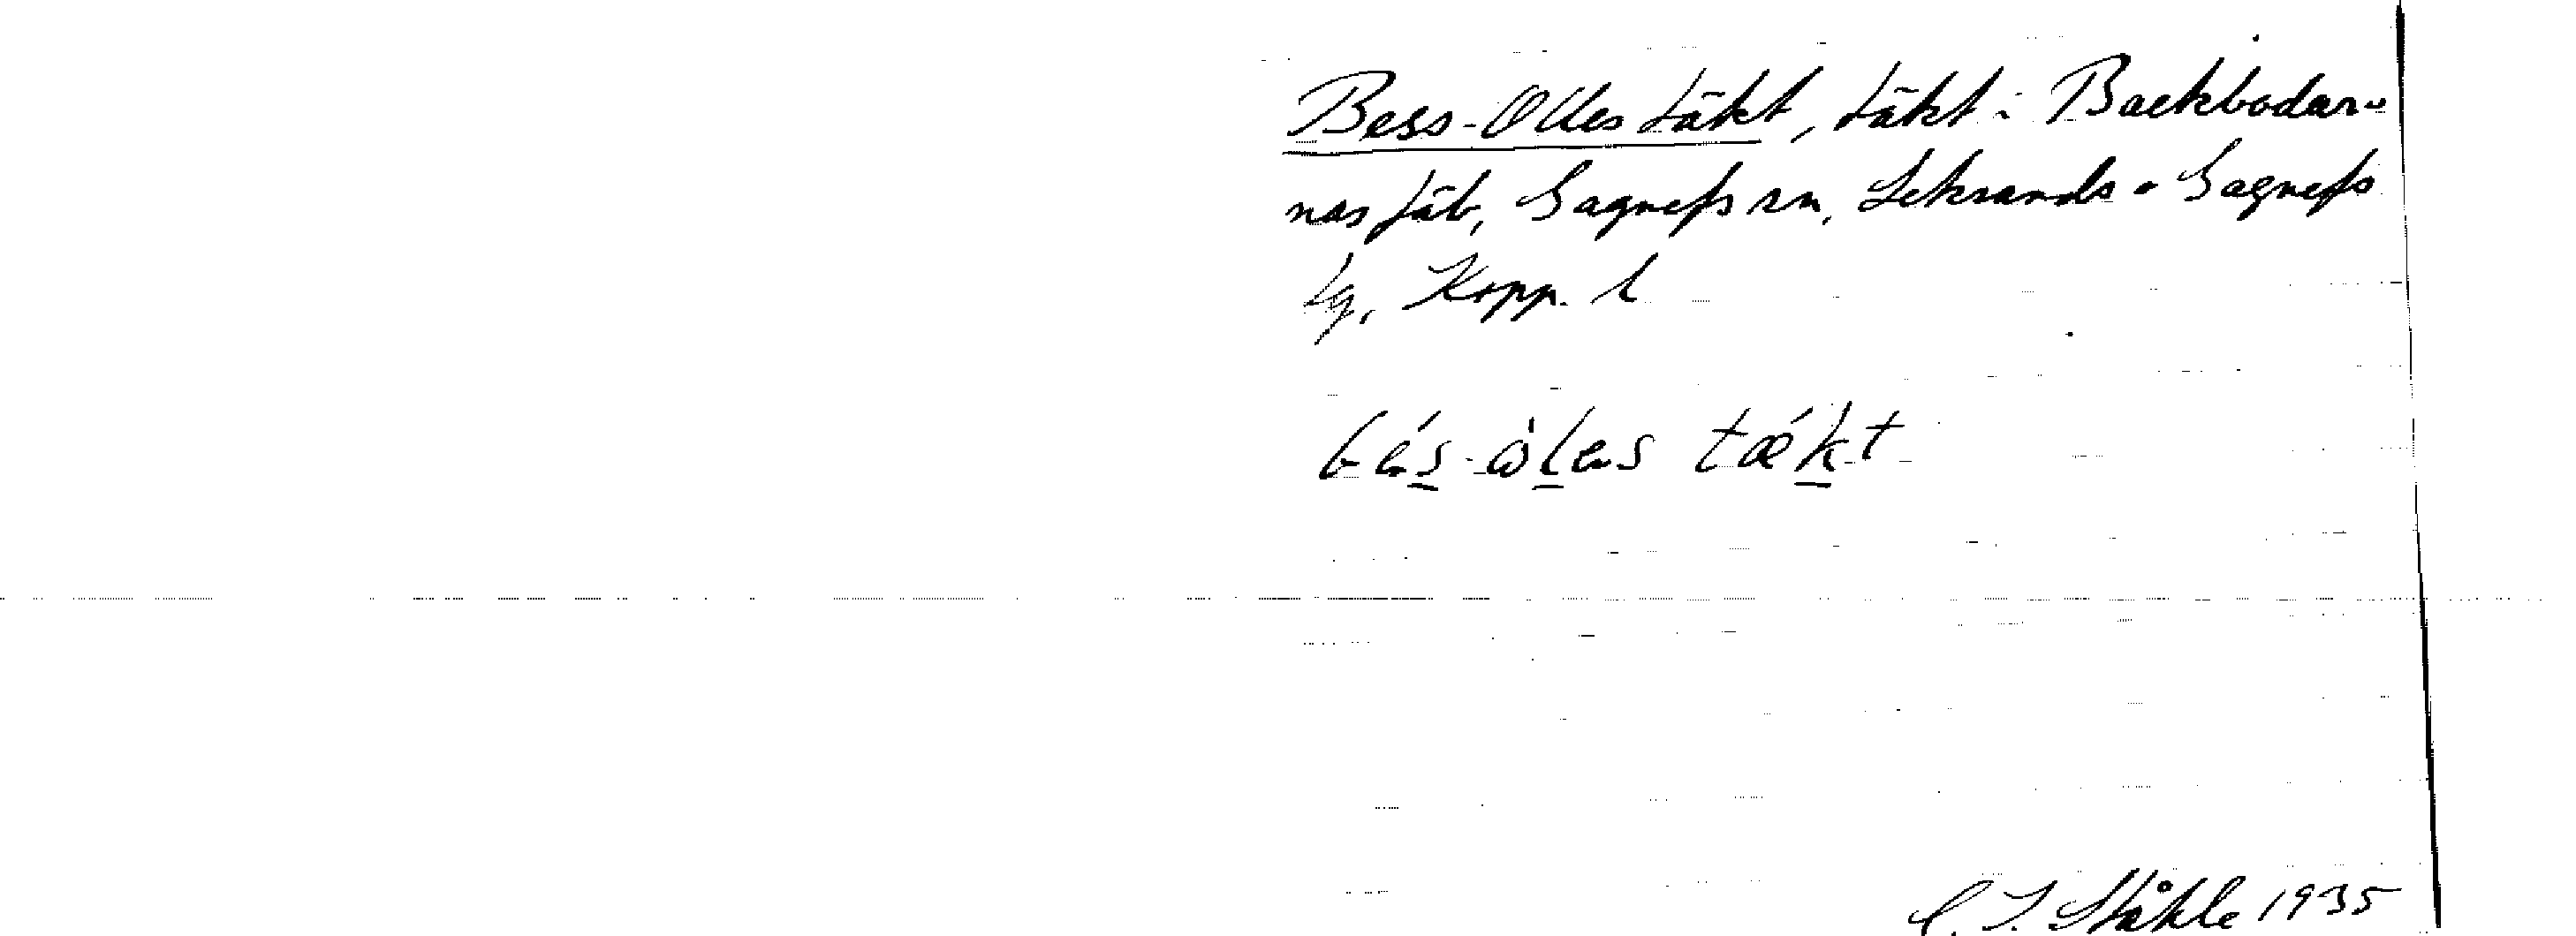 Bess-Olles täkt, täkt i Backbodar-
nas fäb, Gagnefs sn, Leksands o Gagnefs
tg, Kopp. l
bés-òles tækt
C. I. Ståhle 1935